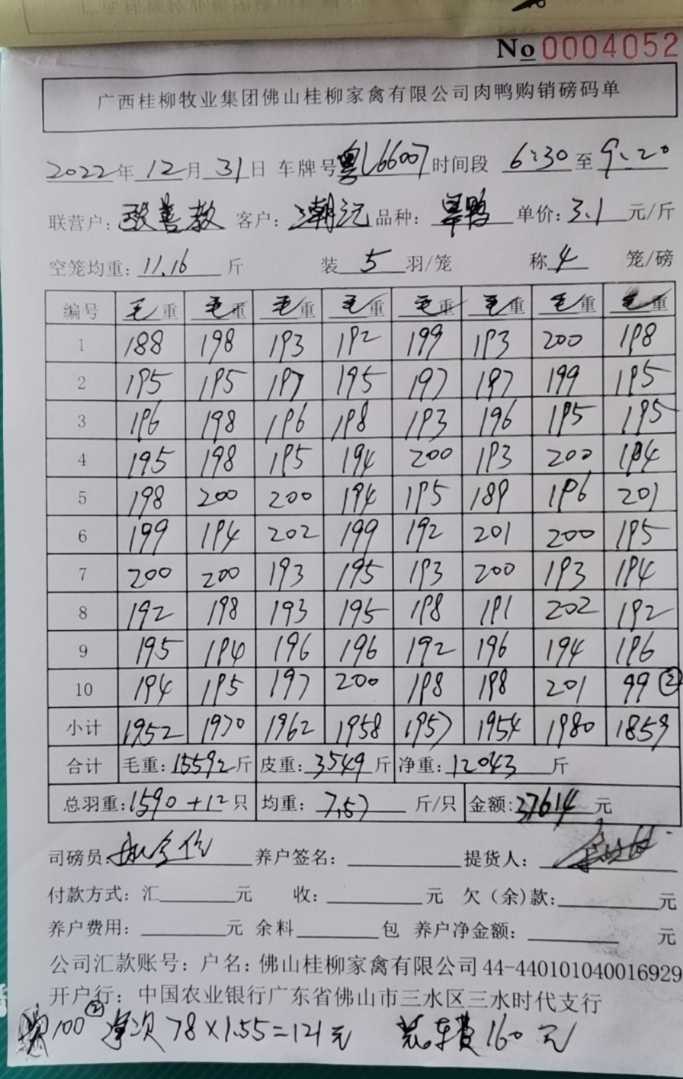 No 0004052
广西桂柳牧业集团佛山桂柳家禽有限公司肉鸭购销磅码单
2022年12月31日 车牌号粤L66007时间段 6:30至9:20
联营户: 客户: 潮沅 品种: 单价: 3.1元/斤
空笼均重: 11.16斤 装5羽/笼 称4笼/磅
编号 毛重 毛重 毛重 毛重 毛重 毛重 毛重 毛重
1 188 198 193 192 199 193 200 198
2 195 195 197 195 197 197 199 195
3 196 198 196 198 193 196 195 195
4 195 198 195 194 200 193 200 194
5 198 200 200 194 195 189 196 201
6 199 194 202 199 192 201 200 195
7 200 200 193 195 193 200 193 194
8 192 198 193 195 198 191 202 192
9 195 194 196 196 192 196 194 196
10 194 195 197 200 198 198 201 99 ②
小计 1952 1970 1962 1958 1957 1954 1980 1859
合计 毛重: 15592斤 皮重: 3549斤 净重: 12043斤
总羽重: 1590+12只 均重: 7.57斤/只 金额: 37614元
司磅员: 养户签名: 提货人:
付款方式: 汇 元 收: 元 欠（余)款: 元
养户费用: 元 余料 包 养户净金额: 元
公司汇款账号: 户名: 佛山桂柳家禽有限公司 44-440101040016929
开户行: 中国农业银行广东省佛山市三水区三水时代支行
100② 78×1.55=121元 车费160元